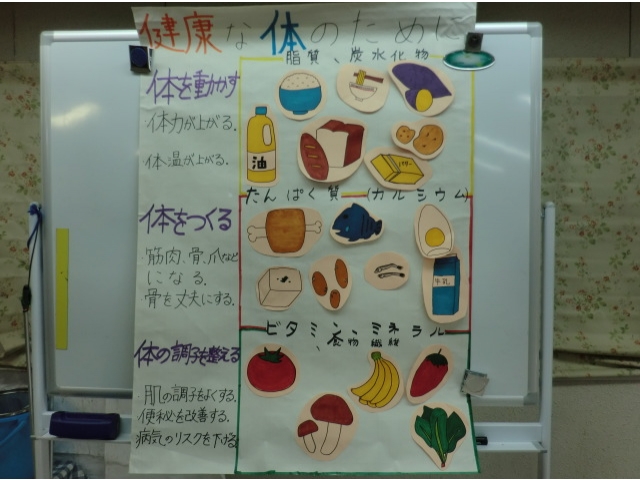 健康な体のために
脂質、炭水化物
体を動かす
体力が上がる。
体温が上がる。
油
バター
たんぱく質 (カルシウム)
体をつくる
筋肉、骨、爪など
になる。
骨を丈夫にする。
牛乳
ビタミン、ミネラル
、食物繊維
体の調子を整える
肌の調子をよくする。
便秘を改善する。
病気のリスクを下げる。